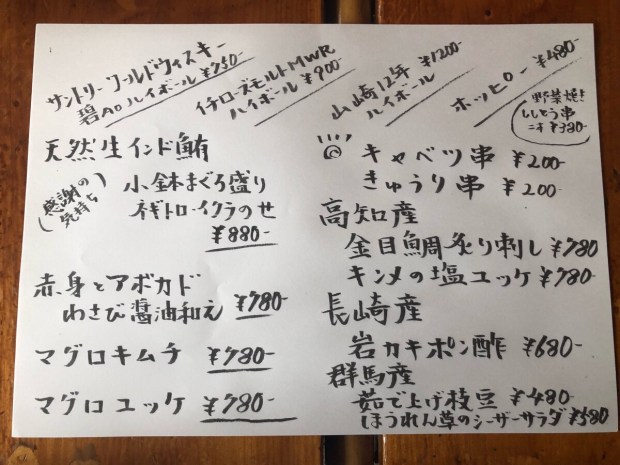 サントリーワールドウィスキー
碧Ao ハイボール ¥750-
イチローズモルトMWR
ハイボール ¥900-
山崎12年 ¥1200-
ハイボール
ホッピー ¥480-
野菜焼き
ししとう串
二本 ¥380-
天然生インド鮪
(感謝の
気持ち)
小鉢まぐろ盛り
ネギトロイクラのせ
¥880-
赤身とアボカド
わさび醤油和え ¥780-
マグロキムチ ¥780-
マグロユッケ ¥780-
キャベツ串 ¥200-
きゅうり串 ¥200-
高知産
金目鯛炙り刺し ¥780
キンメの塩ユッケ ¥780-
長崎産
岩カキポン酢 ¥680-
群馬産
茹で上げ枝豆 ¥480-
ほうれん草のシーザーサラダ ¥580